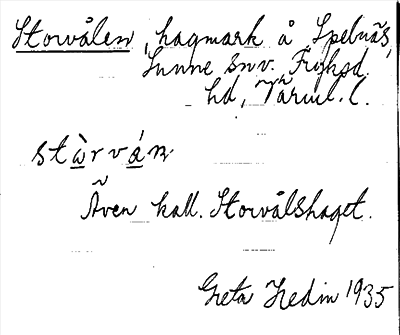 Storvålen, hagmark å Spelnäs,
Sunne snv. Fryksd.
hd, Värml. l.
stὼrván
Även kall. Storvålshaget.
Greta Hedin 1935